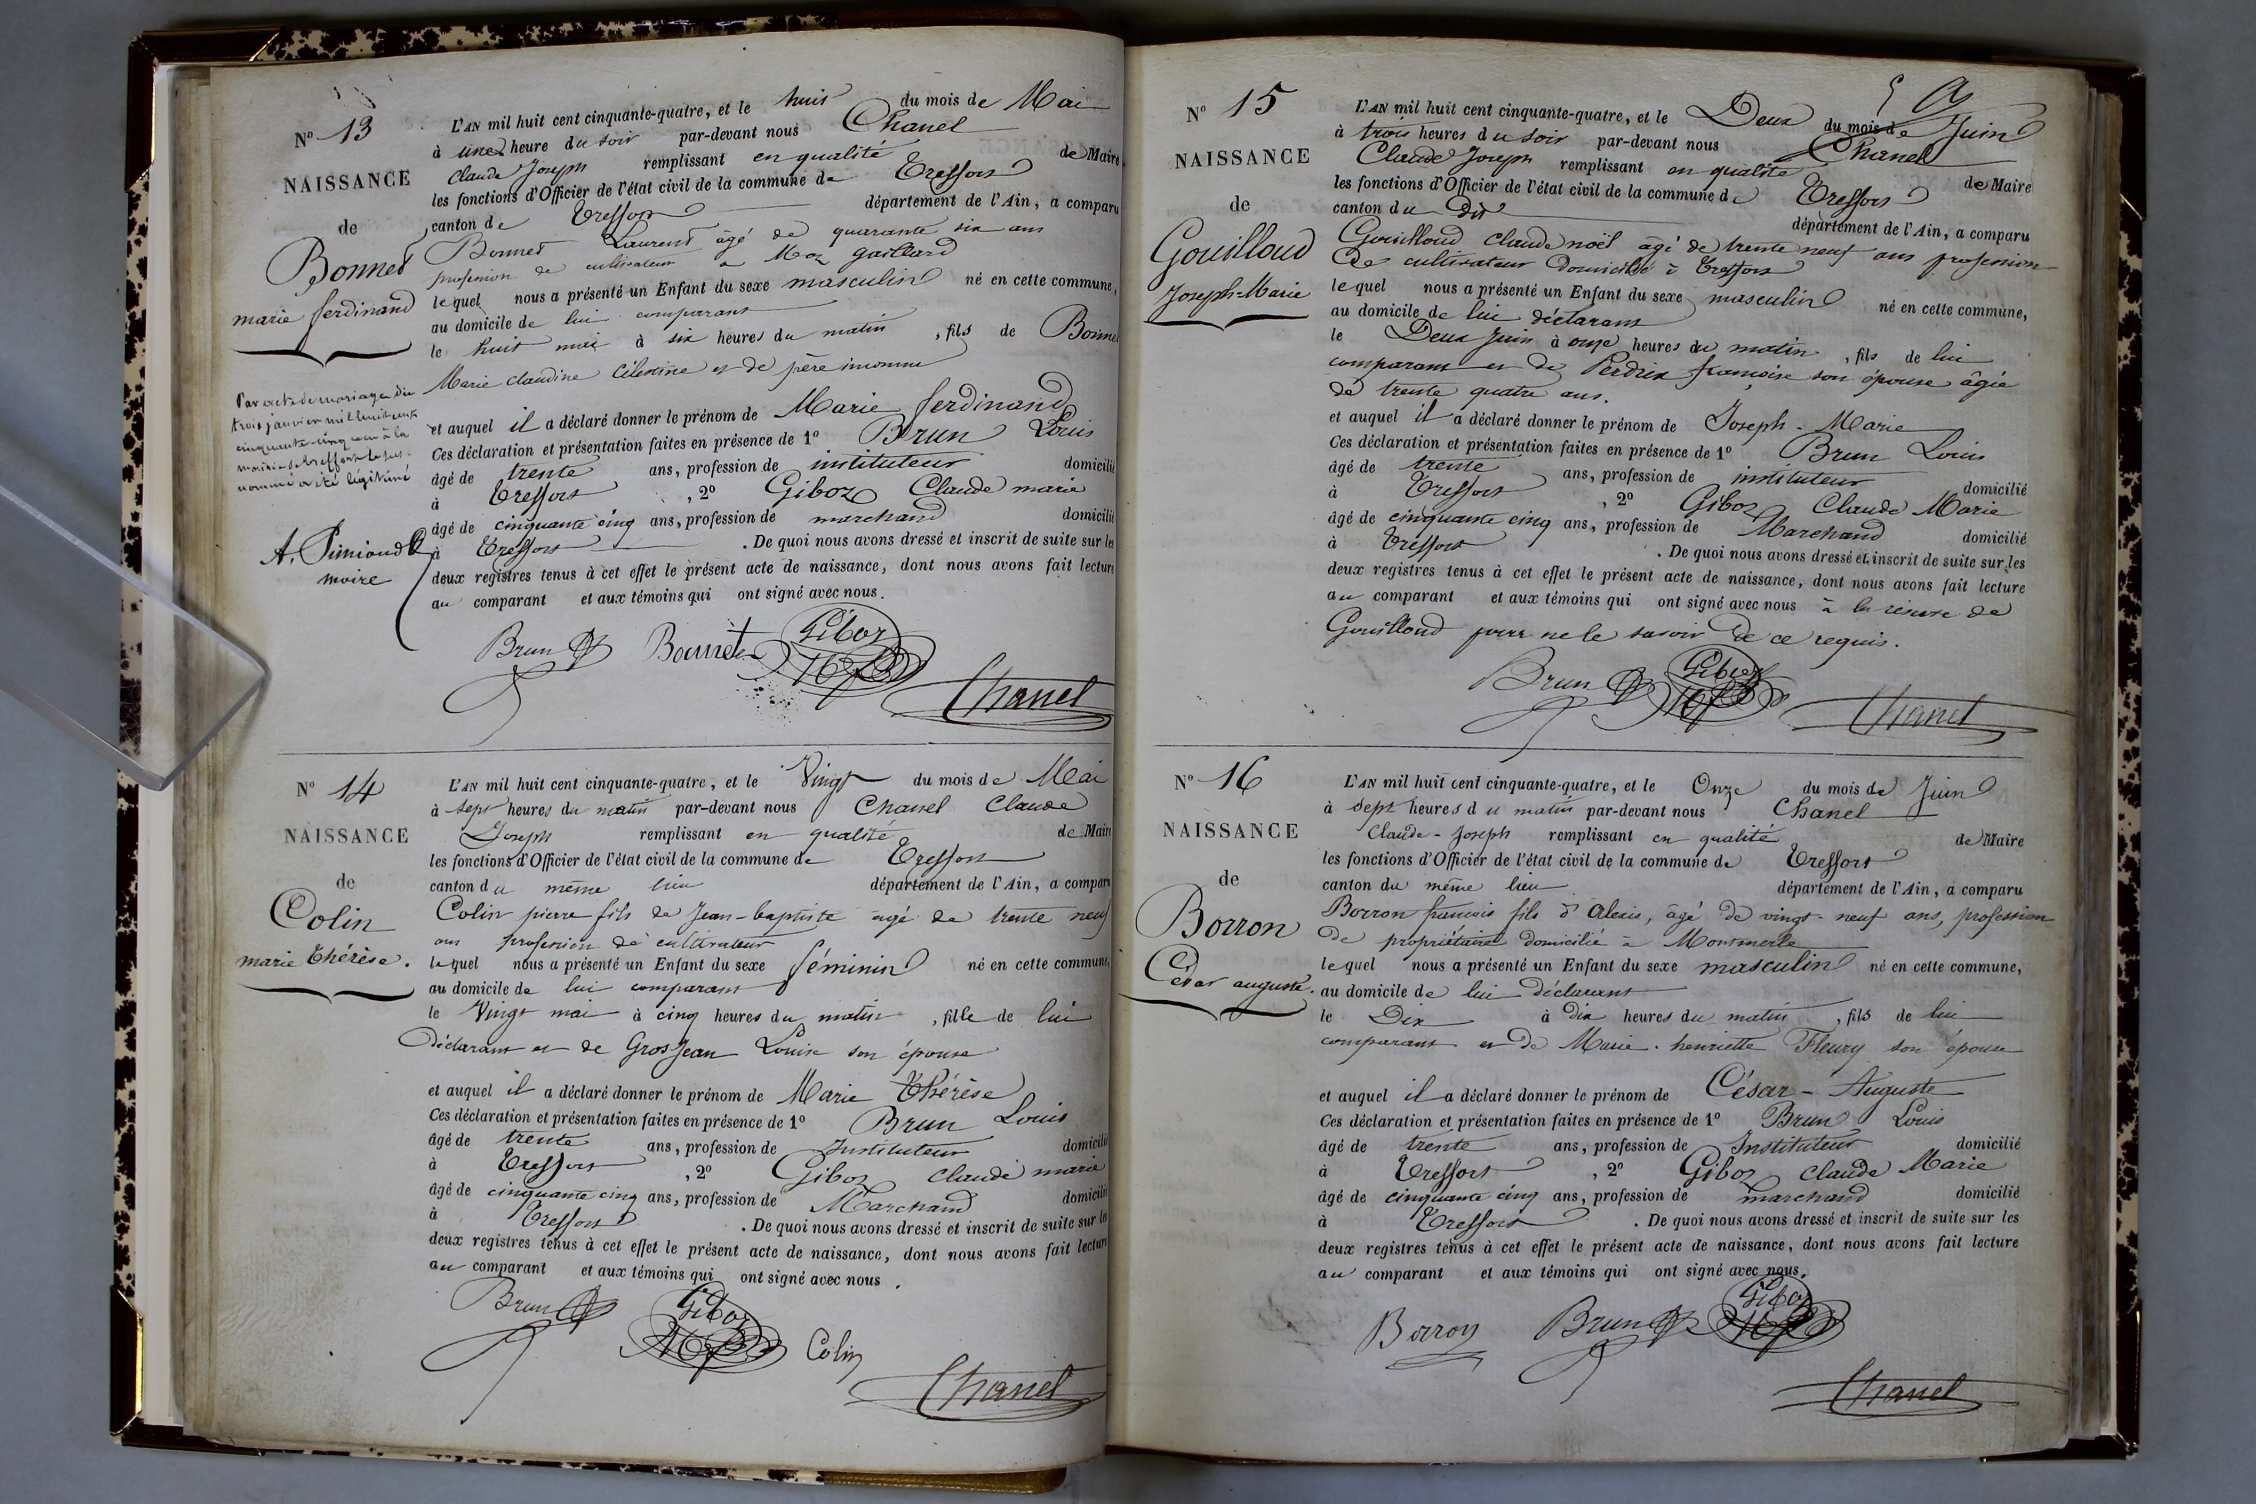 N° 13
NAISSANCE
de
Bonnet
marie ferdinand
Par acte de mariage du
trois janvier mil huit cent
cinquante-cinq reçu à la
mairie de Treffort le sus-
nommé a été légitimé
maire
L'AN mil huit cent cinquante-quatre, et le huit du mois de Mai
à une heure du soir par-devant nous Chanel
Claude Joseph remplissant en qualité de Maire
les fonctions d'Officier de l'état civil de la commune de Treffort
canton de Treffort département de l'Ain, a comparu
Bonnet Laurent âgé de quarante six ans
profession de cultivateur a Moz gaillard
lequel nous a présenté un Enfant du sexe masculin né en cette commune,
au domicile de lui comparant
le huit mai à six heures du matin, fils de Bonnet
Marie claudine Célestine et de père inconnu
et auquel il a déclaré donner le prénom de Marie ferdinand
Ces déclaration et présentation faites en présence de 1° Brun Louis
âgé de trente ans, profession de instituteur domicilié
à Treffort, 2° Giboz Claude marie
âgé de cinquante cinq ans, profession de marchand domicilié
à Treffort. De quoi nous avons dressé et inscrit de suite sur les
deux registres tenus à cet effet le présent acte de naissance, dont nous avons fait lecture
au comparant et aux témoins qui ont signé avec nous.
Brun Bonnet Giboz
Chanel
N° 14
NAISSANCE
de
Colin
marie Thérèse.
L'AN mil huit cent cinquante-quatre, et le Vingt du mois de Mai
à sept heures du matin par-devant nous Chanel Claude
Joseph remplissant en qualité de Maire
les fonctions d'Officier de l'état civil de la commune de Treffort
canton du même lieu département de l'Ain, a comparu
Colin pierre fils de Jean-baptiste âgé de trente neuf
ans profession de cultivateur
lequel nous a présenté un Enfant du sexe féminin né en cette commune,
au domicile de lui comparant
le Vingt mai à cinq heures du matin, fille de lui
Déclarant et de GrosJean Louise son épouse
et auquel il a déclaré donner le prénom de Marie Thérèse
Ces déclaration et présentation faites en présence de 1° Brun Louis
âgé de trente ans, profession de Instituteur domicilié
à Treffort, 2° Giboz Claude marie
âgé de cinquante cinq ans, profession de Marchand domicilié
à Treffort. De quoi nous avons dressé et inscrit de suite sur les
deux registres tenus à cet effet le présent acte de naissance, dont nous avons fait lecture
au comparant et aux témoins qui ont signé avec nous.
Brun Giboz Colin
Chanel
N° 15
NAISSANCE
de
Gouilloud
Joseph-Marie
L'AN mil huit cent cinquante-quatre, et le Deux du mois de Juin
à trois heures du soir par-devant nous Chanel
Claude Joseph remplissant en qualité de Maire
les fonctions d'Officier de l'état civil de la commune de Treffort
canton du dit département de l'Ain, a comparu
Gouilloud Claude noël âgé de trente neuf ans profession
de cultivateur domicilié à Treffort
lequel nous a présenté un Enfant du sexe masculin né en cette commune,
au domicile de lui déclarant
le Deux Juin à onze heures du matin, fils de lui
comparant et de Perdrix françoise son épouse âgée
de trente quatre ans.
et auquel il a déclaré donner le prénom de Joseph-Marie
Ces déclaration et présentation faites en présence de 1° Brun Louis
âgé de trente ans, profession de instituteur domicilié
à Treffort, 2° Giboz Claude Marie
âgé de cinquante cinq ans, profession de Marchand domicilié
à Treffort. De quoi nous avons dressé et inscrit de suite sur les
deux registres tenus à cet effet le présent acte de naissance, dont nous avons fait lecture
au comparant et aux témoins qui ont signé avec nous à la réserve de
Gouilloud pour ne le savoir de ce requis.
Brun Giboz
Chanel
N° 16
NAISSANCE
de
Borron
César auguste.
L'AN mil huit cent cinquante-quatre, et le Onze du mois de Juin
à sept heures du matin par-devant nous Chanel
Claude-Joseph remplissant en qualité de Maire
les fonctions d'Officier de l'état civil de la commune de Treffort
canton du même lieu département de l'Ain, a comparu
Borron françois fils d'Alexis, âgé de vingt-neuf ans, profession
de propriétaire domicilié à Montmerle
lequel nous a présenté un Enfant du sexe masculin né en cette commune,
au domicile de lui déclarant
le Dix à dix heures du matin, fils de lui
comparant et de Marie-henriette Fleury son épouse
et auquel il a déclaré donner le prénom de César-Auguste
Ces déclaration et présentation faites en présence de 1° Brun Louis
âgé de trente ans, profession de Instituteur domicilié
à Treffort, 2° Giboz Claude Marie
âgé de cinquante cinq ans, profession de marchand domicilié
à Treffort. De quoi nous avons dressé et inscrit de suite sur les
deux registres tenus à cet effet le présent acte de naissance, dont nous avons fait lecture
au comparant et aux témoins qui ont signé avec nous.
Borron Brun Giboz
Chanel